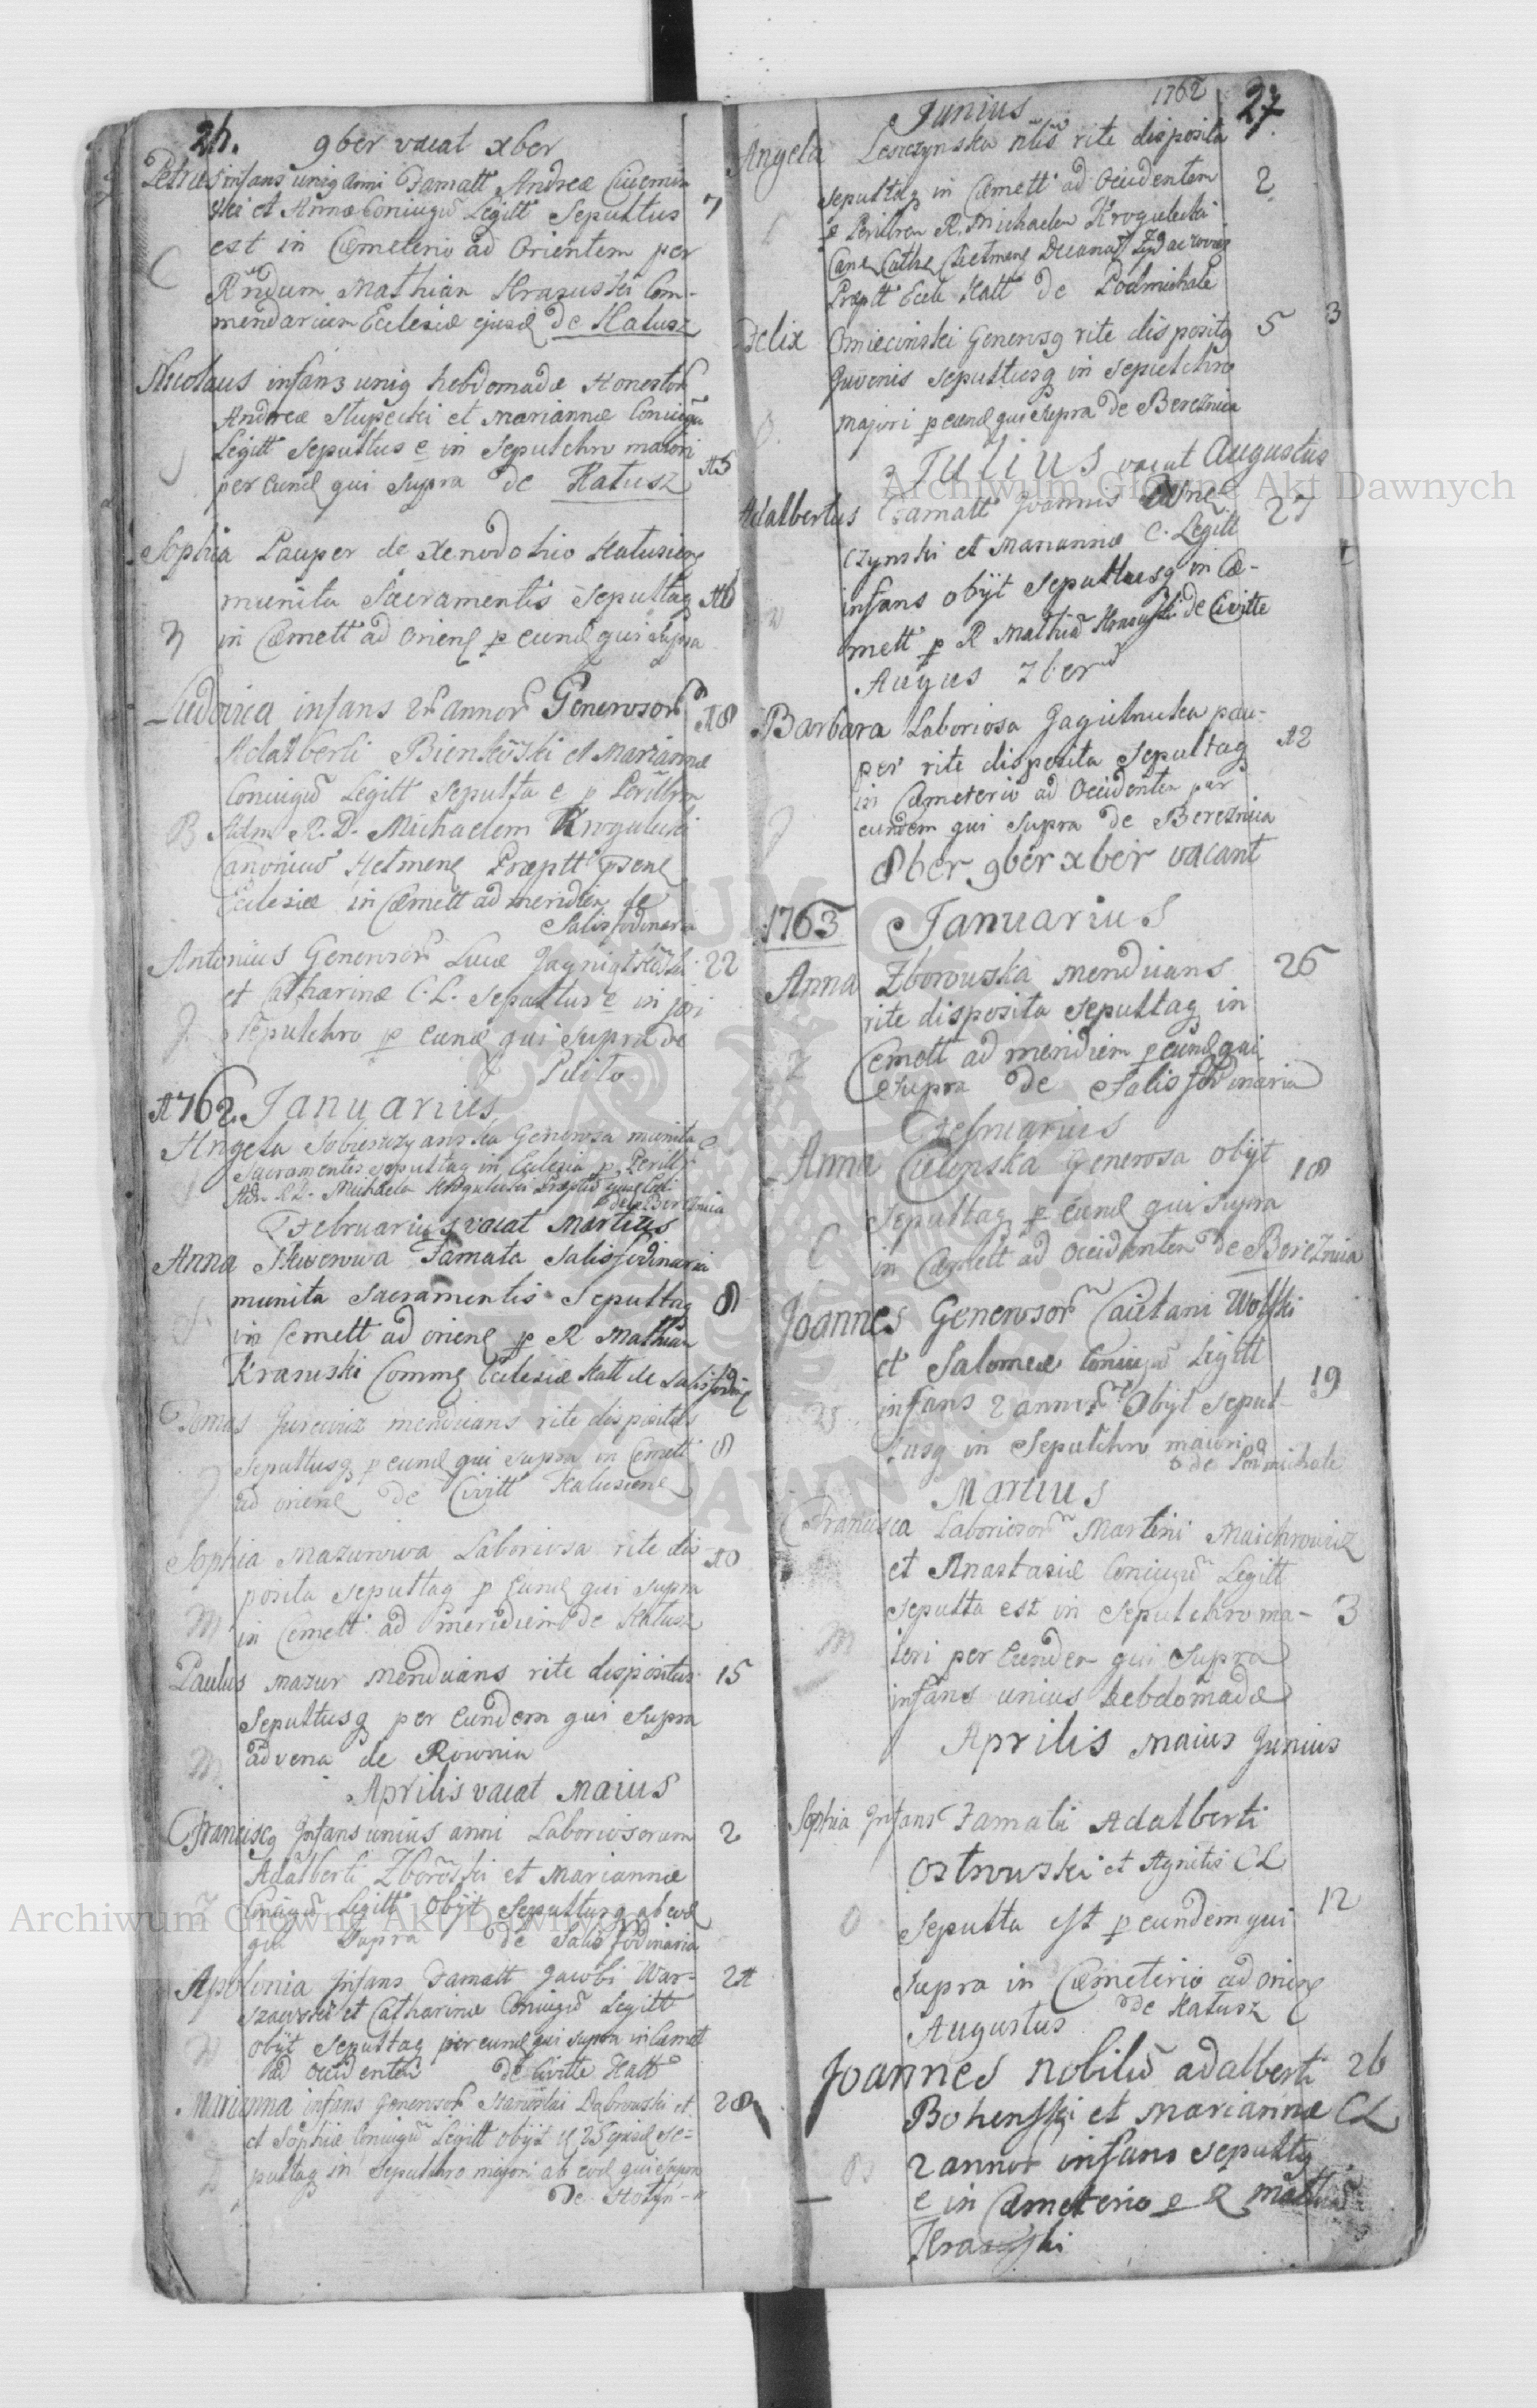 26.
9ber vacat xber
Petrus infans unius anni Famatt Andreæ
et Annæ Coniugũ Legitt Sepultus 7
est in Cæmeterio ad Orientem per
Rndum Mathian Krasuski Com-
mendarium Eclesiæ ejusd de Kalusz
Nicolaus infans unig hebdomadæ Honestor
Andreæ Slupecki et Mariannæ Coniugũ
Legitt Sepultus e in Sepulchro maiori
per eund qui Supra de Kalusz 15
Sophia Pauper de Xenodohio Kalusien
munita Sacramentis Sepultag 16
in Cæmett ad Orien p eund qui Supra
Ludovica infans annor Generosor 18
Adalberti Bienkowski et Mariannæ
Coniugũ Legitt Sepulta e p Perillrem
Adm R. D. Michaelem Krogulecki
Canonicũ Hetmen Præptt
Eclesiæ in Cæmett ad meridien de
Salisfodinaria
Antonius Generosor Lucæ 22
et Catharinæ C. L. Sepultus e in
Sepulchro p eund qui Supra de
Pilito
1762. Januarius
Angela Generosa munita
Sacramentis sepultag in Eclesia p Perillr
Adm R D. Michaelem Krogulecki
de Bereznica
Februarius vacat Martius
Anna Famata Salisfodinaria
munita Sacramentis Sepultag 8
in Cemett ad orien p R Mathian
Krasuski Comme Eclesiæ Kall de Salisfodin
Tomas Jurewicz mendicans rite dispositus
Sepultusq p eund qui Supra in Cemett 8
ad orien de Civitt Kalusien
Sophia Mazurowa Laboriosa rite dis- 10
posita sepultag p eund qui supra
in Cemett ad meridiem de Kalusz
Paulus Mazur Mendicans rite dispositus 15
Sepultusq per Eundem qui Supra
advena de Rownia
Aprilis vacat Maius
Franciscg Infans unius anni Laboriosorum 2
Adalberti Zborowski et Mariannæ
Coniugũ Legitt Obijt Sepultusq ab eod
qui Supra de Salisfodinaria
Apolonia Infans Famatt Jacobi War- 21
szawski et Catharinæ Coniugũ Legitt
obijt Sepultag per eund qui supra in Cemet
ad Occidenten de Civitte Kall
Marianna infans Generosor Stanislai Dąbrowski et 28
et Sophiæ Coniugũ Legitt obijt 25 ejusd se-
pultag in Sepulchro majori ab eod qui supra
de Hołyń
1762 27.
Junius
Angela Leszczynska rite disposita
sepultag in Cæmett ad Occidentem 2
p Perillren R. Michaelem Krogulecki
Can Cathe Chelmens Decanum
Præptt Ecele Kall de Podmichale
Felix Omiecinski Generosg rite dispositg 5
Juvenis Sepultusq in Sepulchro
majori p eund qui Supra de Bereznica
Julius vacat Augustus
Adalbertus Famatt Joannis 27
czynski et Mariannæ C. Legitt
infans obijt Sepultusq in Cæ-
mett p R Mathiã Krasuski de Civitte
Augus 7ber
Barbara Laboriosa Jagielnicka pau- 12
per rite disposita Sepultag
in Cæmeterio ad Occidenten per
eundem qui Supra de Bereznica
8ber 9ber xber vacant
1763 Januarius
Anna Zborowska mendicans 26
rite disposita Sepultag in
Cemett ad meridiem p eund qui
Supra de Salisfodinaria
Februarius
Anna Cielinska Generosa obijt 18
Sepultag p Eund qui Supra
in Cæmett ad Occidenten de Bereznica
Joannes Generosor Caietani Wolski
et Salomeæ Coniugũ Legitt
infans 2 annor Obijt Sepul- 19
tusq in Sepulchro maiori
de Podmichale
Martius
Francisca Laboriosor Martini Maichrowicz
et Anastasiæ Coniugũ Legitt
Sepulta est in Sepulchro ma- 3
iori per Eunden qui Supra
infans unius hebdomadæ
Aprilis Maius Junius
Sophia Infans Famati Adalberti
Ostrowski et Agnetis CL
Sepulta est p eundem qui 12
Supra in Cæmeterio ad orien
Augustus de Kalusz
Joannes Nobiliũ adalberti 26
Bohenski et Mariannæ CL
2 annor infans sepultg
e in Cæmeterio p R Mathiã
Krasuski
Archiwum Główne Akt Dawnych
Archiwum Główne Akt Dawnych